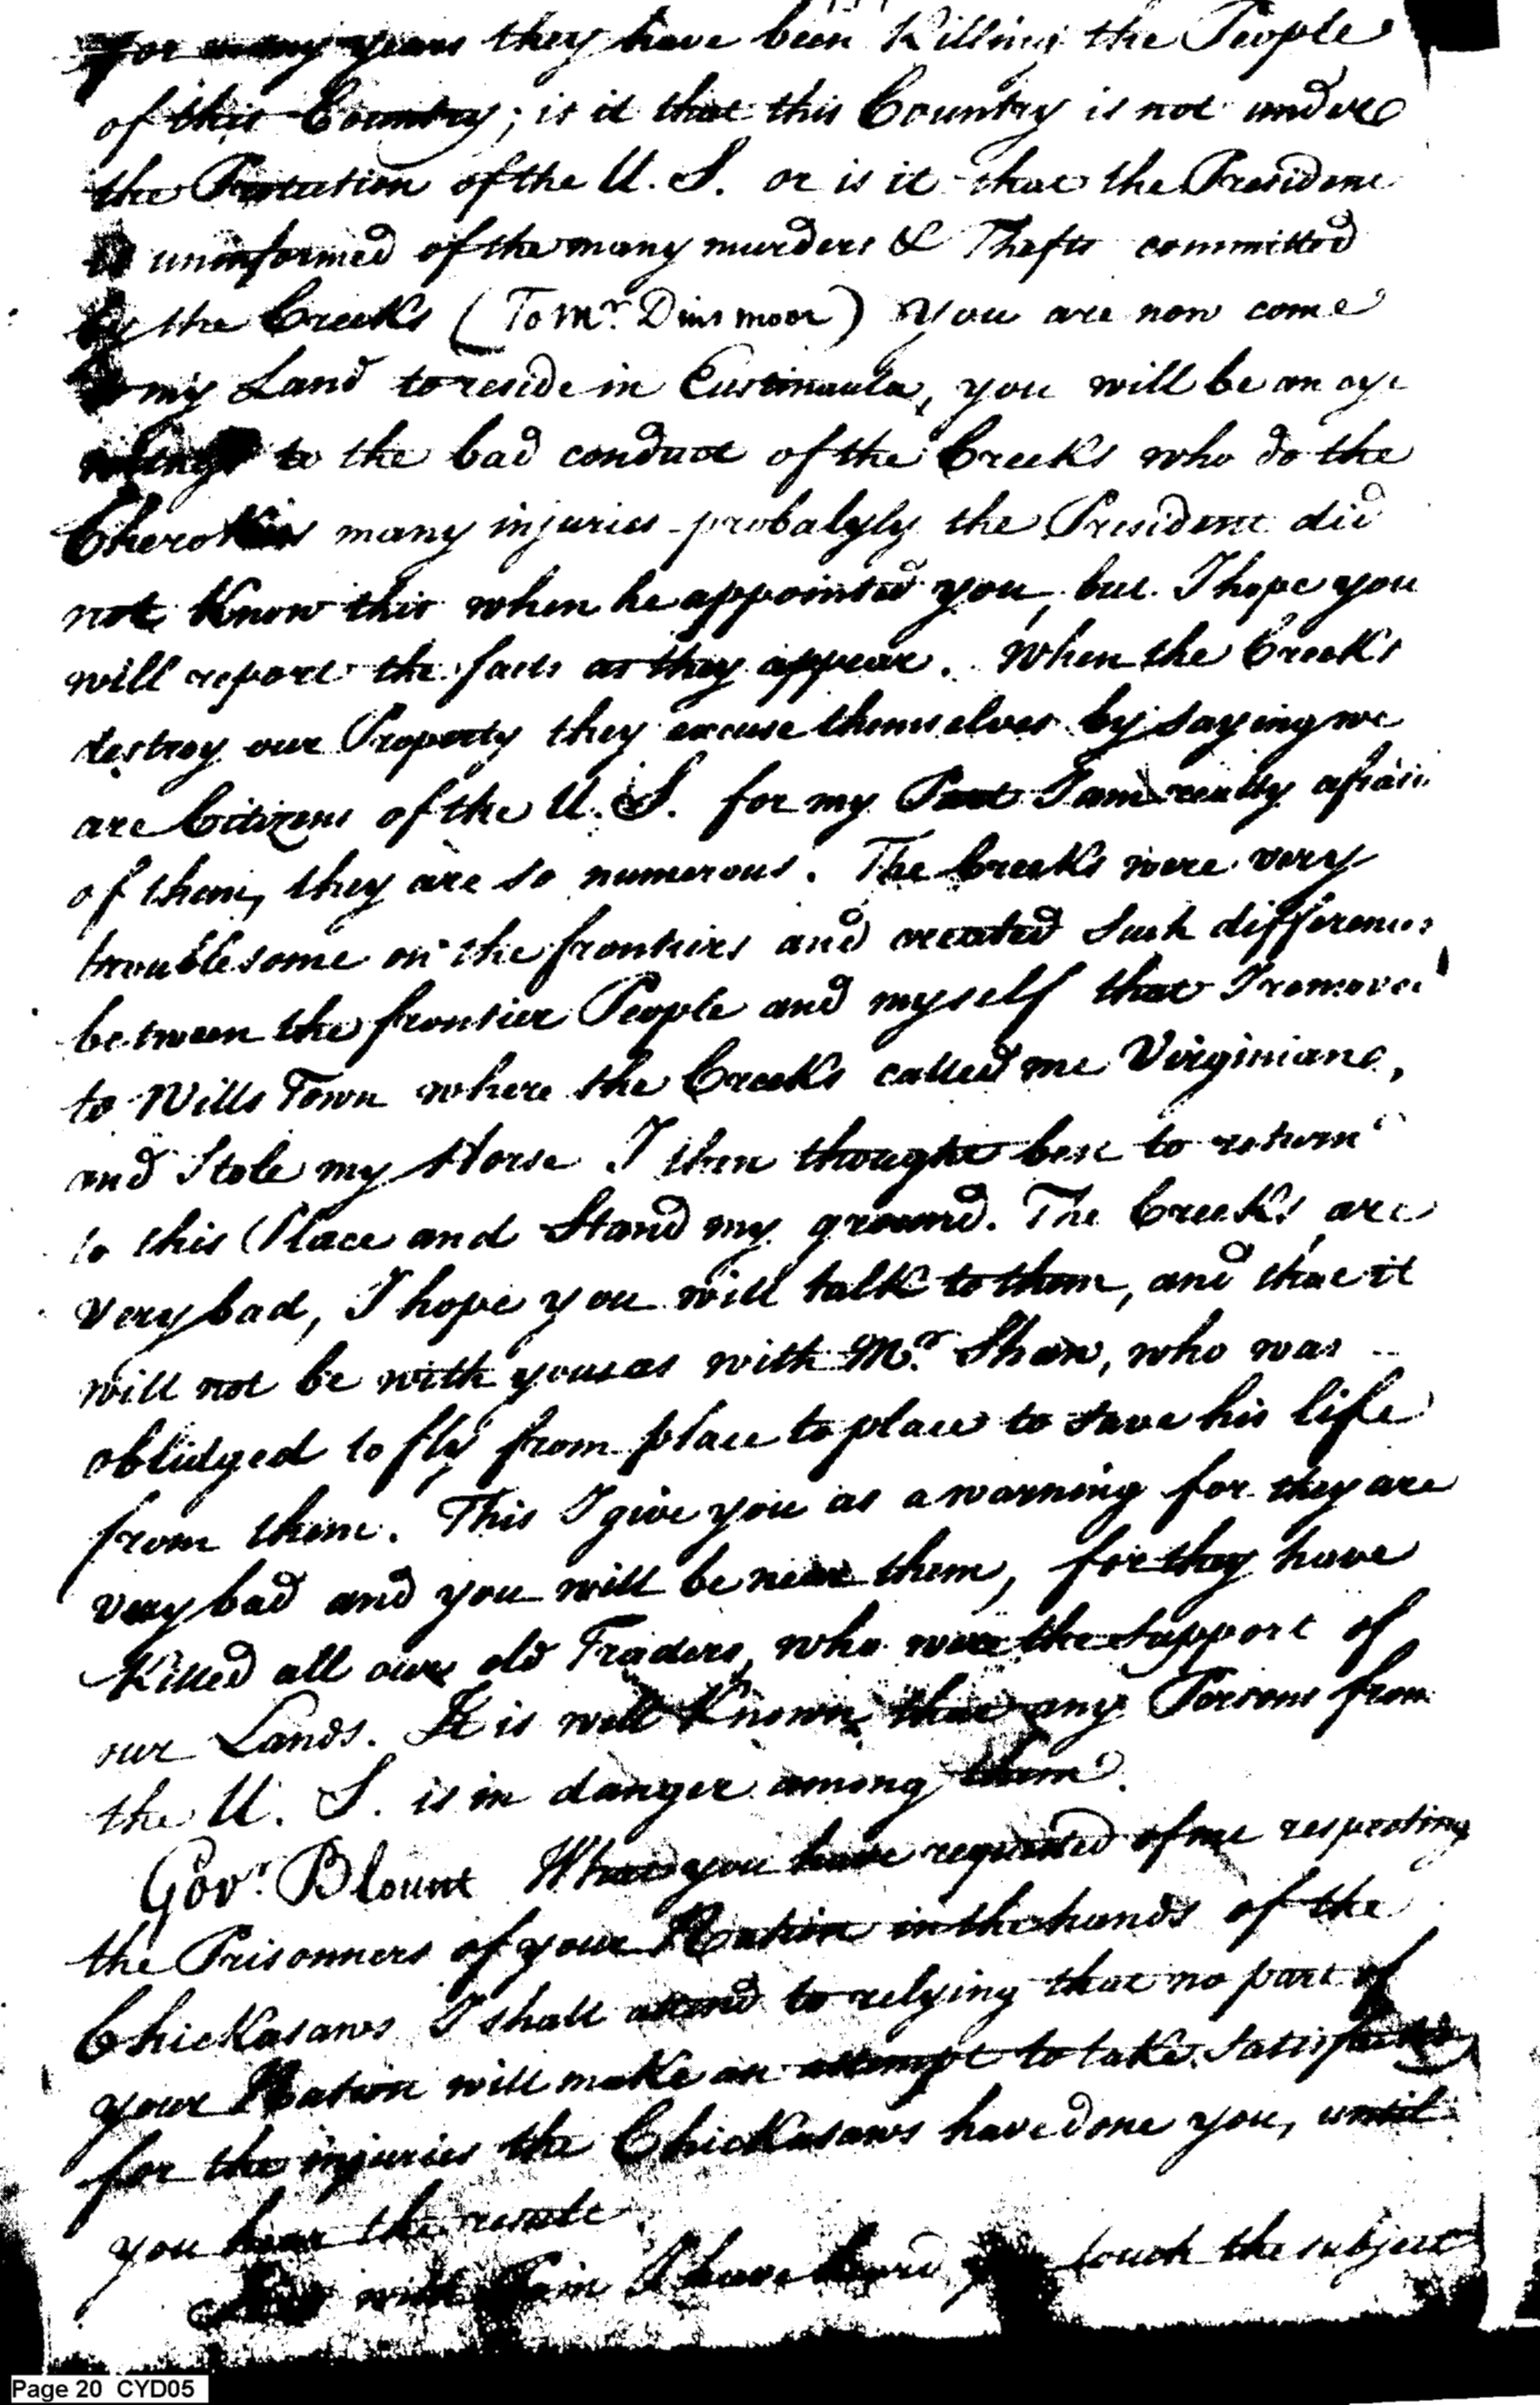 For many years they have been Killing the People
of this Country; is it that this Country is not under
the Protection of the U. S. or is it that the President
is uninformed of the many murders & Thefts committed
by the Creeks (To Mr. Dinsmoor) You are now come
to my Land to reside in Eustinaula, you will be an eye
witness to the bad conduct of the Creeks who do the
Cherokees many injuries probalyly the President did
not Know this when he appointed you, but I hope you
will report the facts as they appear. When the Creeks
destroy our Property they excuse themselves by saying we
are Citizens of the U. S. for my Part I am really afraid
of them, they are so numerous. The Creeks were very
troublesome on the frontiers and created such differences
between the frontier People and myself that I removed
to Wills Town where the Creeks called me Virginians,
and Stole my Horse I then thought best to return
to this Place and Stand my ground. The Creeks are
very bad, I hope you will talk to them, and that it
will not be with you as with Mr. Shaw, who was
oblidged to fly from place to place to save his life
from them. This I give you as a warning for they are
very bad and you will be near them, for they have
Killed all our old Traders, who were the support of
our Lands. It is well Known that any Persons from
the U. S. is in danger among them.
Govr. Blount What you have requested of me respecting
the Prisonners of your Nation in the hands of the
Chickasaws I shall attend to relying that no part of
your Nation will make an attempt to take Satisfaction
for the injuries the Chickasaws have done you, until
you hear the result
with Pain I have heard you touch the subject
Page 20 CYD05